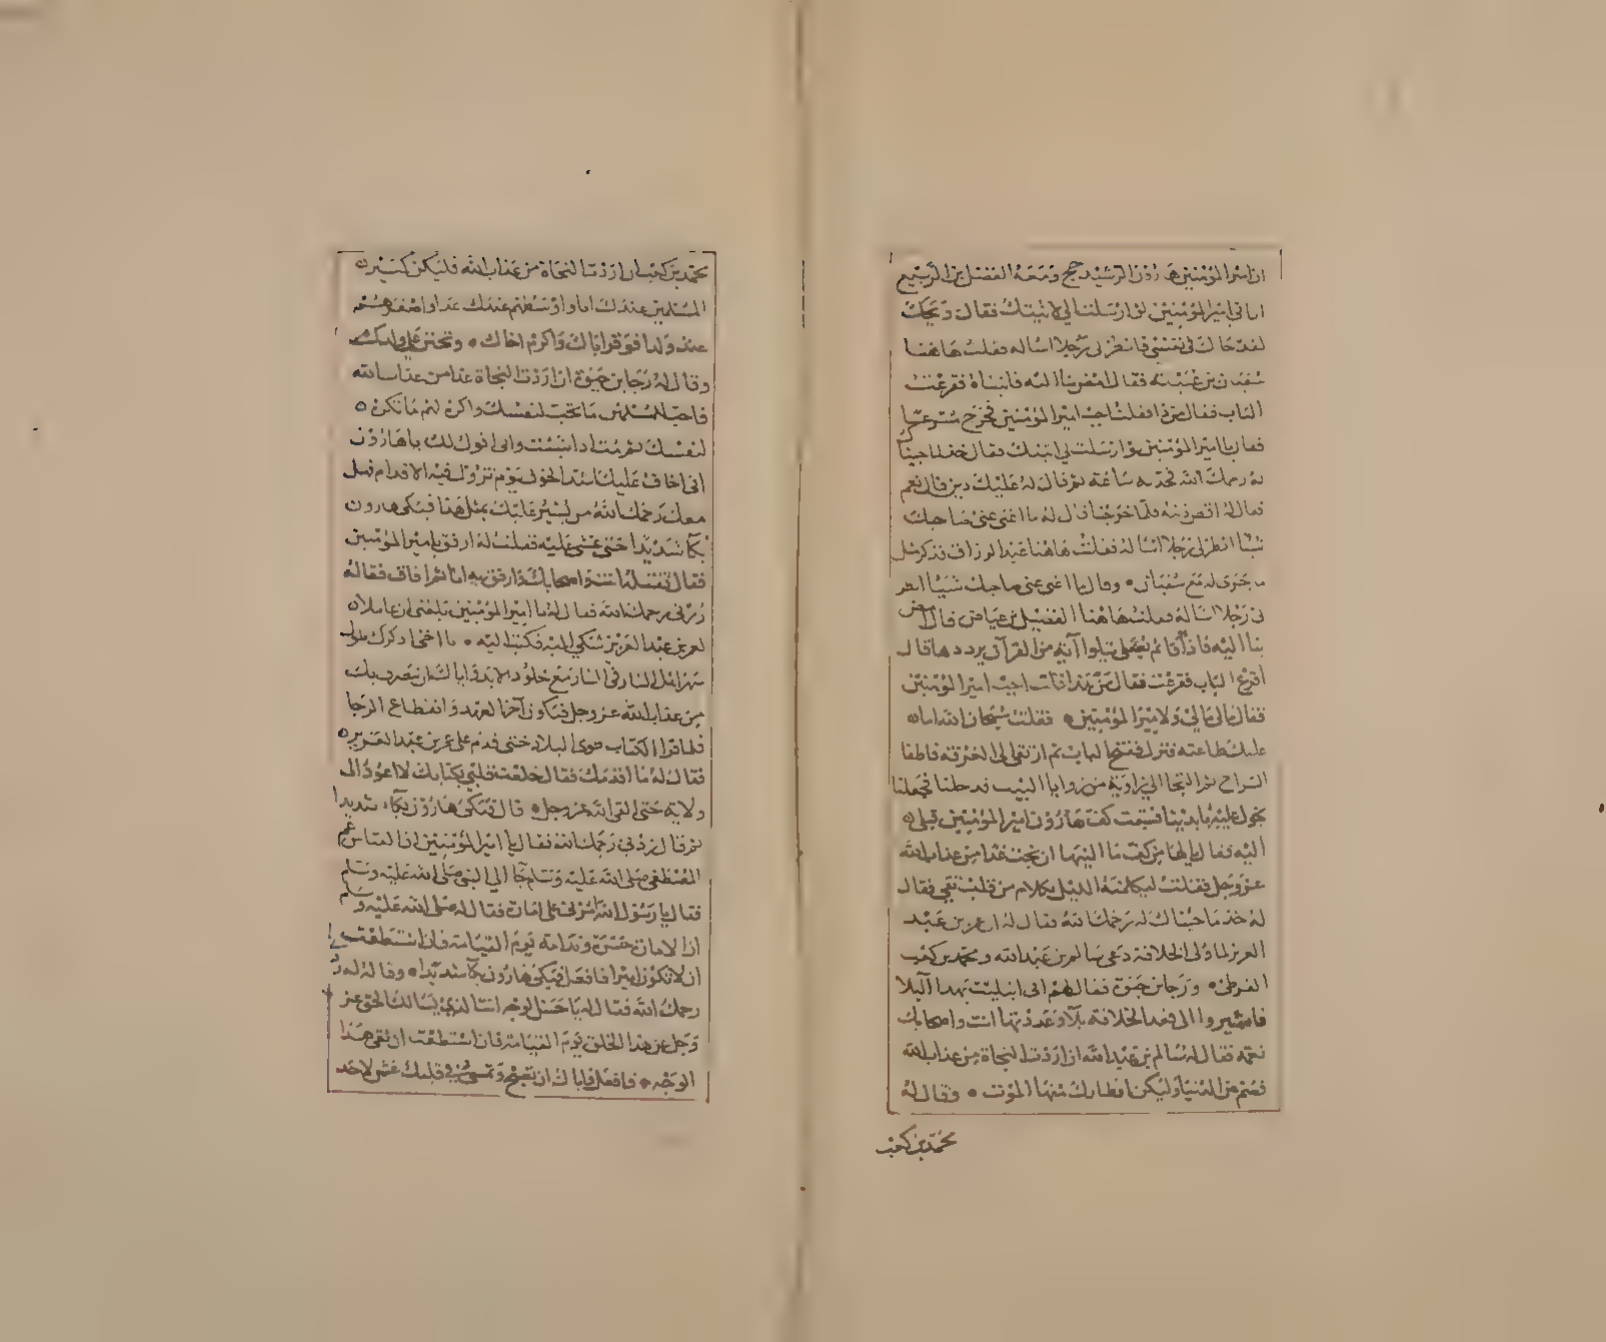 ان امير المؤمنين هارون الرشيد حج ومعه الفضل بن الربيع
امير المؤمنين لو ارسلت الي لاتيتك فقال ويحك
لقد حاك في نفسي فانظر لي رجلا اساله فقلت هاهنا
سفيان بن عيينة فقال امض بنا اليه فاتيناه فقرعت
الباب فقال من ذا فقلت اجب امير المؤمنين فخرج مسرعا
فقال يا امير المؤمنين لو ارسلت الي اتيتك فقال خذ لما جيناك
له رحمك الله فحدثه ساعة ثم قال له عليك دين قال نعم
فقال له اقض دينه فلما خرجنا قال له ما اغنى عني صاحبك
شيئا انظر لي رجلا اساله فقلت هاهنا عبد الرزاق فذكر مثل
ما جرى له مع سفيان وقال ما اغنى عني صاحبك شيئا انظر
لي رجلا اساله فقلت هاهنا الفضيل بن عياض قال امض
بنا اليه فاذا قائم يصلي يتلوا آية من القرآن يرددها قال
اقرع الباب فقرعت فقال من هذا قلت اجب امير المؤمنين
فقال مالي ولامير المؤمنين فقلت سبحان الله اما
عليك طاعته فنزل ففتح الباب ثم ارتقى الى الغرفة فاطفا
السراج ثم التجا الى زاوية من زوايا البيت فدخلنا فجعلنا
نجول عليه بايدينا فسبقت كف هارون امير المؤمنين قبلي
اليه فقال يا لها من كف ما الينها ان نجت غدا من عذاب الله
عز وجل فقلت ليكلمنه الليل بكلام من قلب نقي فقال
له خذ ما جيناك له رحمك الله فقال له ان عمر بن عبد
العزيز لما ولي الخلافة دعى سالم بن عبد الله ومحمد بن كعب
القرظي ورجا بن حيوة فقال لهم اني ابتليت بهذا البلا
فاشيروا الي فعد الخلافة بلا وعددتها انت واصحابك
نعمة فقال له سالم بن عبد الله ان اردت النجاة من عذاب الله
فصم عن الدنيا وليكن افطارك منها الموت وقال له
محمد بن كعب
محمد بن كعب ان اردت النجاة من عذاب الله فليكن كبير
المسلمين عندك ابا واوسطهم عندك اخا واصغرهم
عندك ولدا فوقر اباك واكرم اخاك وتحنن على ولدك
وقال له رجا بن حيوة ان اردت النجاة غدا من عذاب الله
فاحب للمسلمين ما تحب لنفسك واكره لهم ما تكره
لنفسك ثم مت اذا شئت واني اقول لك يا هارون
اني اخاف عليك اشد الخوف يوم تزول فيه الاقدام فهل
معك رحمك الله من يشير عليك بمثل هذا فبكى هارون
بكا شديدا حتى غشي عليه فقلت له ارفق بامير المؤمنين
فقال تقتله انت واصحابك وارفق به انا ثم افاق فقال له
زدني رحمك الله فقال له يا امير المؤمنين بلغني ان عاملا
لعمر بن عبد العزيز شكي اليه فكتب اليه يا اخي اذكرك طول
سهر اهل النار في النار مع خلود الابد واياك ان ينصرف بك
من عذاب الله عز وجل فيكون آخر العهد وانقطاع الرجا
فلما قرا الكتاب طوى البلاد حتى قدم على عمر بن عبد العزيز
فقال له ما اقدمك فقال خلعت قلبي بكتابك لا اعود الى
ولاية حتى القى الله عز وجل قال فبكى هارون بكاء شديدا
ثم قال زدني رحمك الله فقال يا امير المؤمنين ان العباس عم
المصطفى صلى الله عليه وسلم جا الى النبي صلى الله عليه وسلم
فقال يا رسول الله امرني على امارة فقال له صلى الله عليه وسلم
ان الامارة حسرة وندامة يوم القيامة فان استطعت
ان لا تكون اميرا فافعل فبكى هارون بكا شديدا وقال له زدني
رحمك الله فقال له يا حسن الوجه انت الذي يسالك الحق عز
وجل عن هذا الخلق يوم القيامة فان استطعت ان تقي هذا
الوجه فافعل واياك ان تصبح وتمسي وفي قلبك غش لاحد